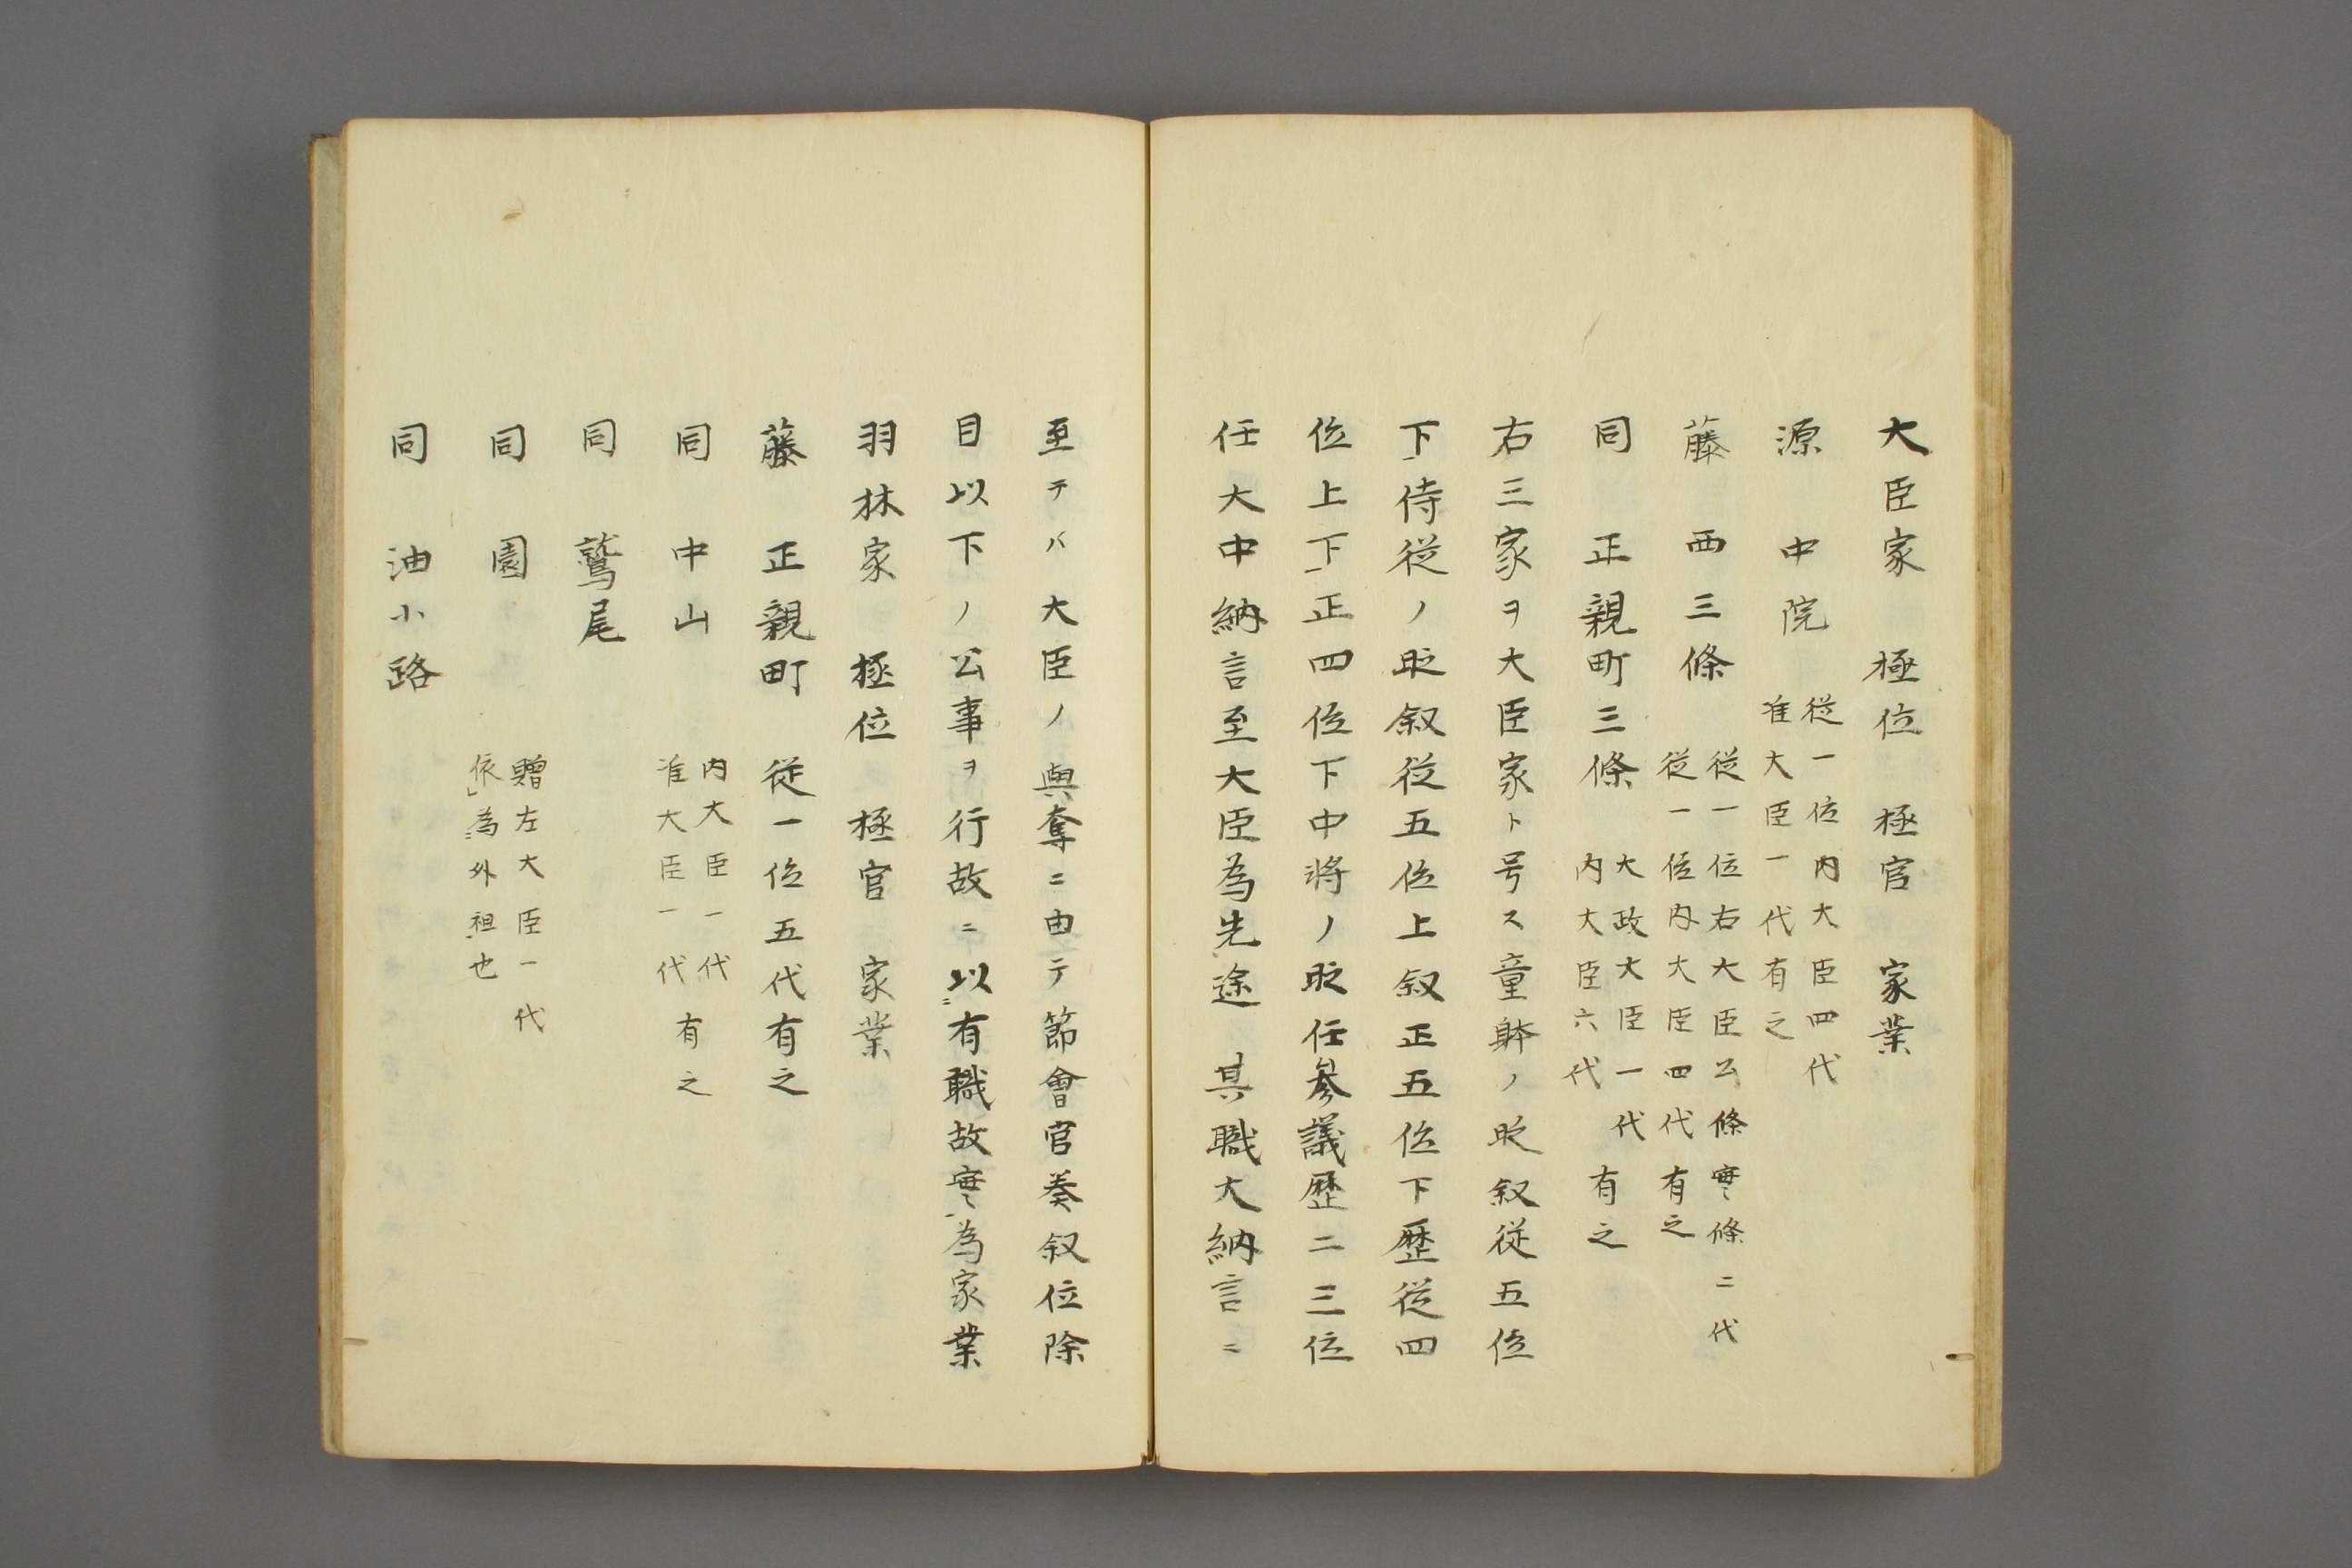 大臣家　極位　極官　家業
源　中院　従一位内大臣四代
准大臣一代有之
藤　西三條　従一位右大臣公條実條二代
従一位内大臣四代有之
同　正親町三條　大政大臣一代
内大臣六代有之
右三家ヲ大臣家ト号ス童躰ノ時叙従五位
下侍従ノ時叙従五位上叙正五位下歴従四
位上下正四位下中将ノ時任参議歴二三位
任大中納言至大臣為先途　其職大納言ニ
至テバ大臣ノ與奪ニ由テ節會官奏叙位除
目以下ノ公事ヲ行故ニ以有職故実為家業
羽林家　極位　極官　家業
藤　正親町　従一位五代有之
同　中山　内大臣一代
准大臣一代有之
同　鷲尾
同　園　贈左大臣一代
依為外祖也
同　油小路